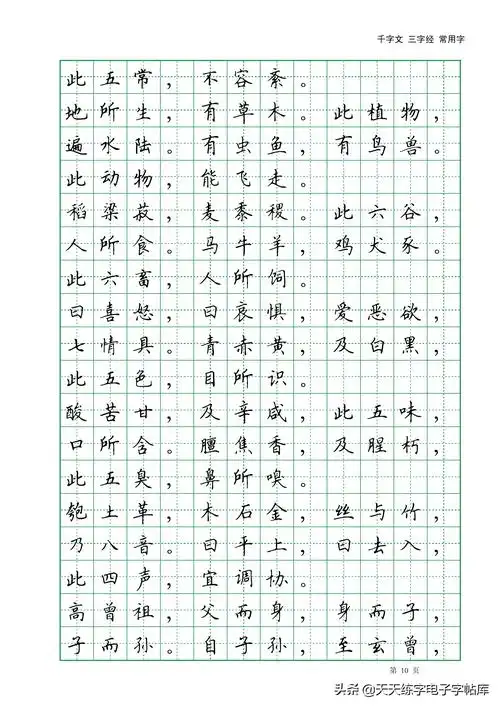 千字文 三字经 常用字
此五常，不容紊。
地所生，有草木。此植物，
遍水陆。有虫鱼，有鸟兽。
此动物，能飞走。
稻梁菽，麦黍稷。此六谷，
人所食。马牛羊，鸡犬豕。
此六畜，人所饲。
曰喜怒，曰哀惧，爱恶欲，
七情具。青赤黄，及白黑，
此五色，目所识。
酸苦甘，及辛咸，此五味，
口所含。膻焦香，及腥朽，
此五臭，鼻所嗅。
匏土革，木石金，丝与竹，
乃八音。曰平上，曰去入，
此四声，宜调协。
高曾祖，父而身，身而子，
子而孙。自子孙，至玄曾，
第 10 页
头条 @天天练字电子字帖库